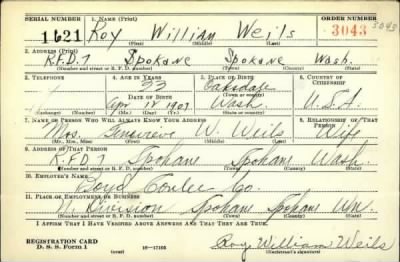 SERIAL NUMBER 1. NAME (Print) ORDER NUMBER
1621 Roy William Weils 3043 3043
(First) (Middle) (Last)
2. ADDRESS (Print)
R.F.D. 7 Spokane Spokane Wash.
(Number and street or R. F. D. number) (Town) (County) (State)
3. TELEPHONE 4. AGE IN YEARS 5. PLACE OF BIRTH 6. COUNTRY OF CITIZENSHIP
33 Oaksdale
DATE OF BIRTH (Town or county)
Apr 18 1907 Wash. U.S.A.
(Mo.) (Day) (Yr.) (State or country)
7. NAME OF PERSON WHO WILL ALWAYS KNOW YOUR ADDRESS 8. RELATIONSHIP OF THAT PERSON
Mrs. Genevieve W. Weils Wife
(Mr., Mrs., Miss) (First) (Middle) (Last)
9. ADDRESS OF THAT PERSON
R.F.D 7 Spokane Spokane Wash.
(Number and street or R. F. D. number) (Town) (County) (State)
10. EMPLOYER'S NAME
Boyd Conlee Co.
11. PLACE OF EMPLOYMENT OR BUSINESS
N. Division Spokane Spokane Wn.
(Number and street or R. F. D. number) (Town) (County) (State)
I AFFIRM THAT I HAVE VERIFIED ABOVE ANSWERS AND THAT THEY ARE TRUE.
REGISTRATION CARD
D. S. S. Form 1 (over) 16—17105
Roy William Weils
(Registrant's signature)